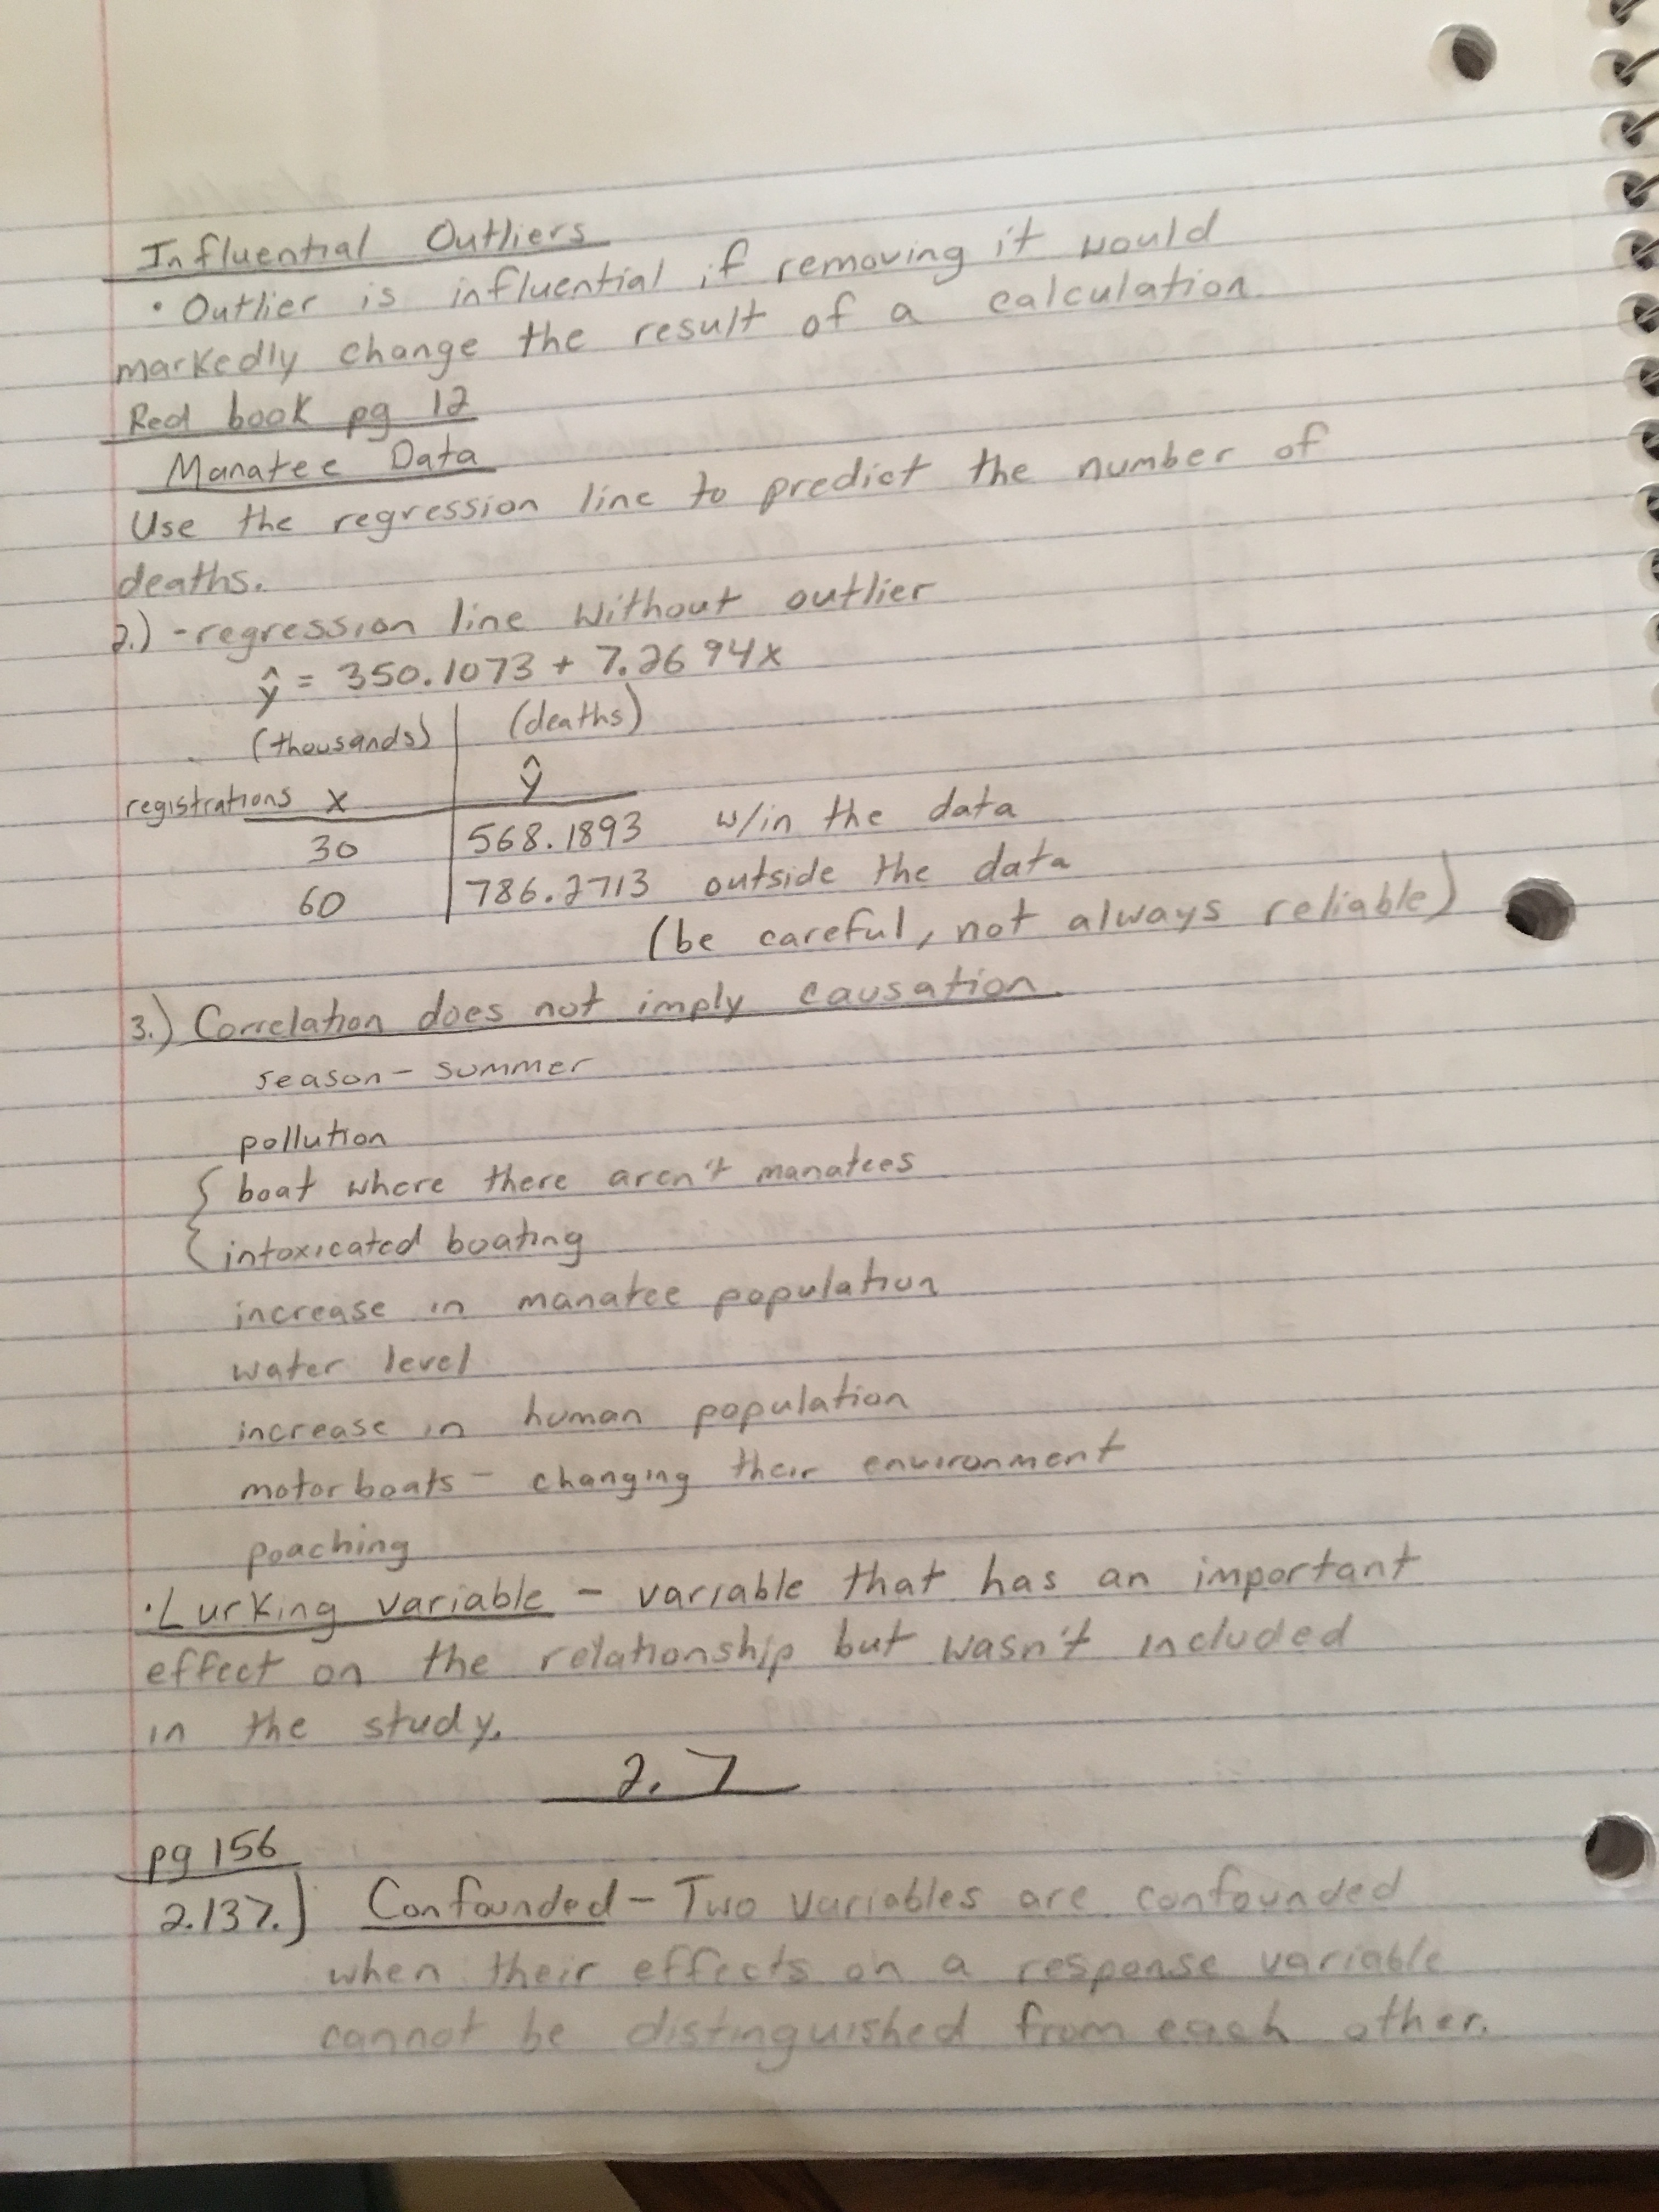 Influential Outliers
• Outlier is influential if removing it would
markedly change the result of a calculation.
Red book pg 12
Manatee Data
Use the regression line to predict the number of
deaths.
2.) - regression line without outlier
ŷ = 350.1073 + 7.2694x
(thousands) (deaths)
registrations x ŷ
30 568.1893 w/in the data
60 786.2713 outside the data
(be careful, not always reliable)
3.) Correlation does not imply causation.
season - summer
pollution
{ boat where there aren't manatees
{ intoxicated boating
increase in manatee population
water level
increase in human population
motor boats - changing their environment
poaching
• Lurking variable - variable that has an important
effect on the relationship but wasn't included
in the study.
2.7
pg 156
2.137.) Confounded - Two variables are confounded
when their effects on a response variable
cannot be distinguished from each other.